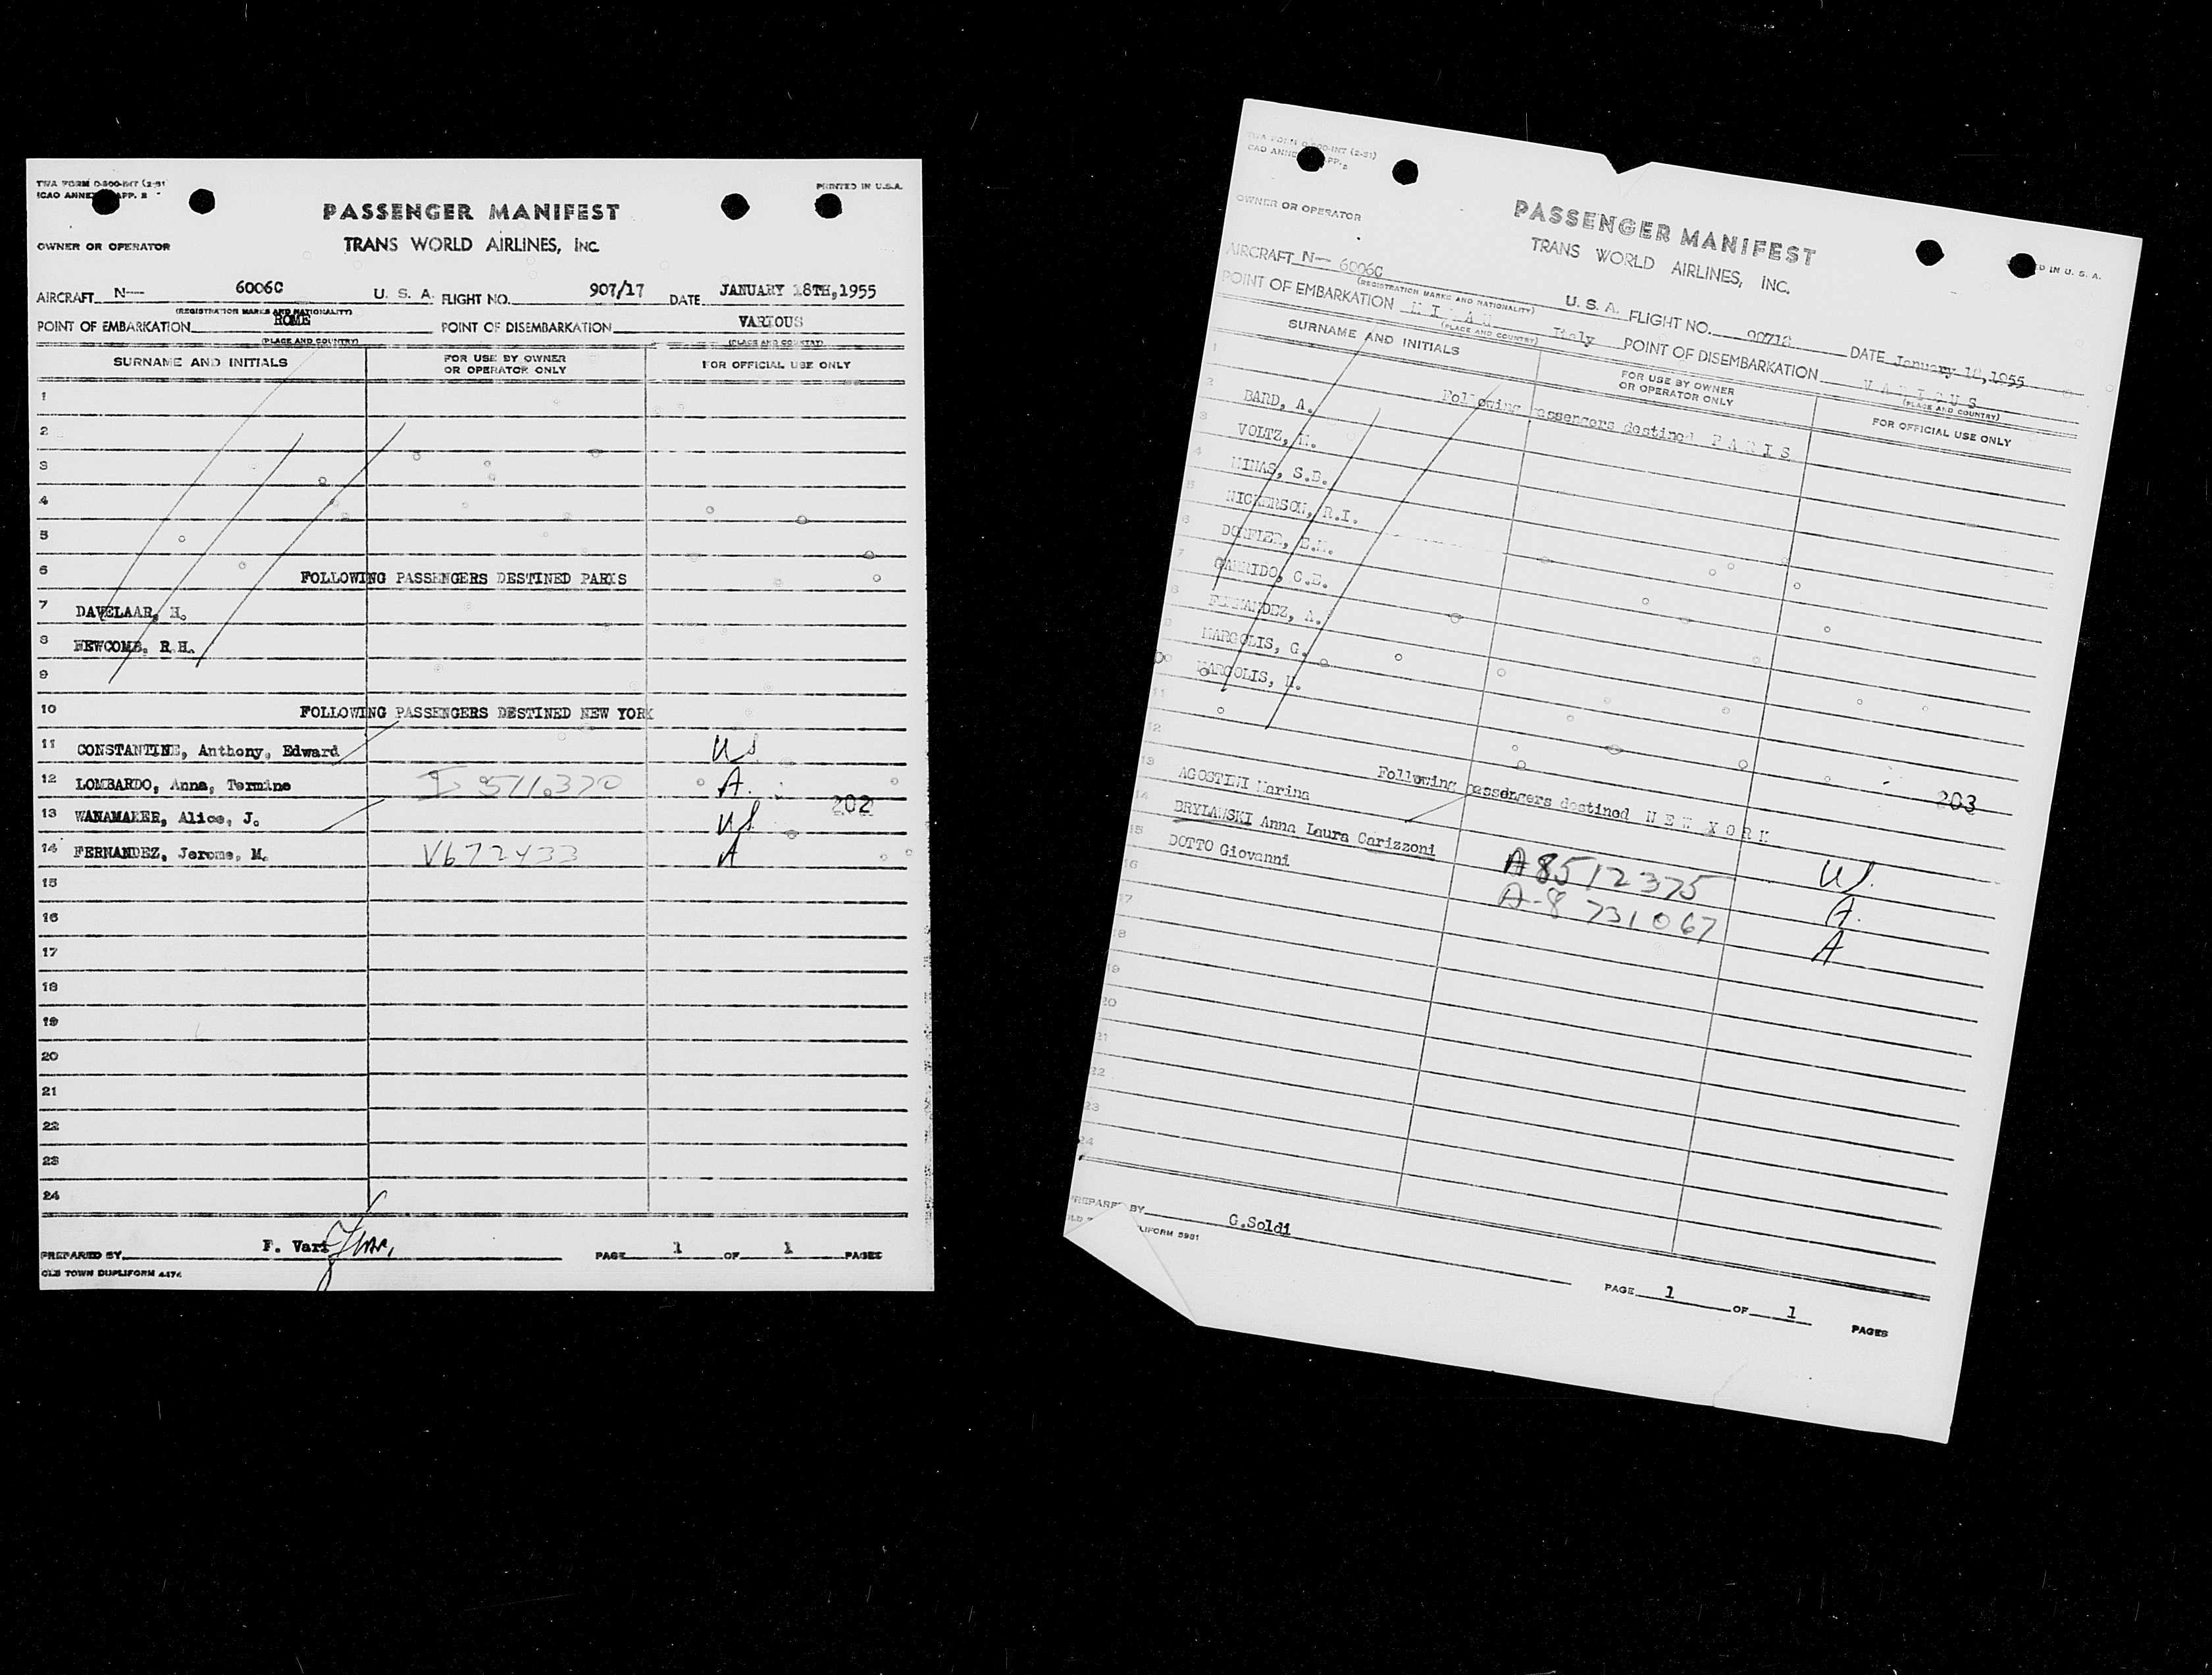 TWA FORM O-800-INT (2-51)
ICAO ANNEX APP. 
PRINTED IN U.S.A.
PASSENGER MANIFEST
OWNER OR OPERATOR
TRANS WORLD AIRLINES, INC.
AIRCRAFT N— 6006C U. S. A. FLIGHT NO. 907/17 DATE JANUARY 18TH,1955
(REGISTRATION MARKS AND NATIONALITY)
POINT OF EMBARKATION ROME POINT OF DISEMBARKATION VARIOUS
(PLACE AND COUNTRY) (PLACE AND COUNTRY)
SURNAME AND INITIALS FOR USE BY OWNER OR OPERATOR ONLY FOR OFFICIAL USE ONLY
1
2
3
4
5
6 FOLLOWING PASSENGERS DESTINED PARIS
7 DAVELAAR, H.
8 NEWCOMB, R.H.
9
10 FOLLOWING PASSENGERS DESTINED NEW YORK
11 CONSTANTINE, Anthony, Edward US
12 LOMBARDO, Anna, Termine I 511.370 A.
202
13 WANAMAKER, Alice, J. US
14 FERNANDEZ, Jerome, M. V672433 A
15
16
17
18
19
20
21
22
23
24
PREPARED BY F. Vari PAGE 1 OF 1 PAGES
OLD TOWN DUPLIFORM 4474
TWA FORM O-800-INT (2-51)
ICAO ANNEX APP.
D IN U. S. A.
PASSENGER MANIFEST
OWNER OR OPERATOR
TRANS WORLD AIRLINES, INC.
AIRCRAFT N— 6006C U. S. A. FLIGHT NO. DATE January 1955
(REGISTRATION MARKS AND NATIONALITY)
POINT OF EMBARKATION M I L A N Italy POINT OF DISEMBARKATION V A R I O U S
(PLACE AND COUNTRY) (PLACE AND COUNTRY)
SURNAME AND INITIALS FOR USE BY OWNER OR OPERATOR ONLY FOR OFFICIAL USE ONLY
1 Following passengers destined P A R I S
2 BARD, A.
3 VOLTZ, M.
4 MINAS, S.B.
5 NICKERSON, R.I.
6 DORFLER, E.M.
7 GARRIDO, C.E.
8 FERNANDEZ, A.
9 MARGOLIS, G.
10 MARGOLIS, H.
11
12 Following passengers destined N E W Y O R K
203
13 AGOSTINI Marina US.
14 BRYLAWSKI Anna Laura Carizzoni A8512375 A.
15 DOTTO Giovanni A-8 731067 A
16
17
18
19
20
21
22
23
24
PREPARED BY G.Soldi
PAGE 1 OF 1 PAGES
LIFORM 5981